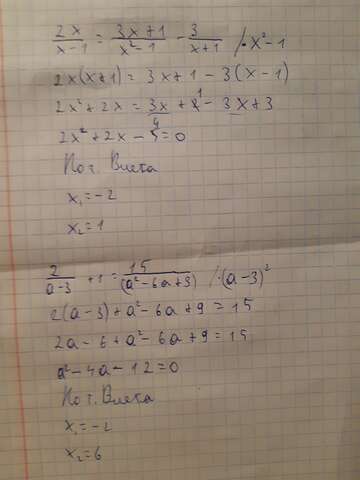 2x/(x-1) = (3x+1)/(x²-1) - 3/(x+1) /·x²-1
2x(x+1) = 3x+1-3(x-1)
2x²+2x = 3x+1-3x+3
2x²+2x-4=0
По т. Виета
x₁=-2
x₂=1
2/(a-3) +1 = 15/(a²-6a+9) /·(a-3)²
2(a-3)+a²-6a+9=15
2a-6+a²-6a+9=15
a²-4a-12=0
По т. Виета
x₁=-2
x₂=6